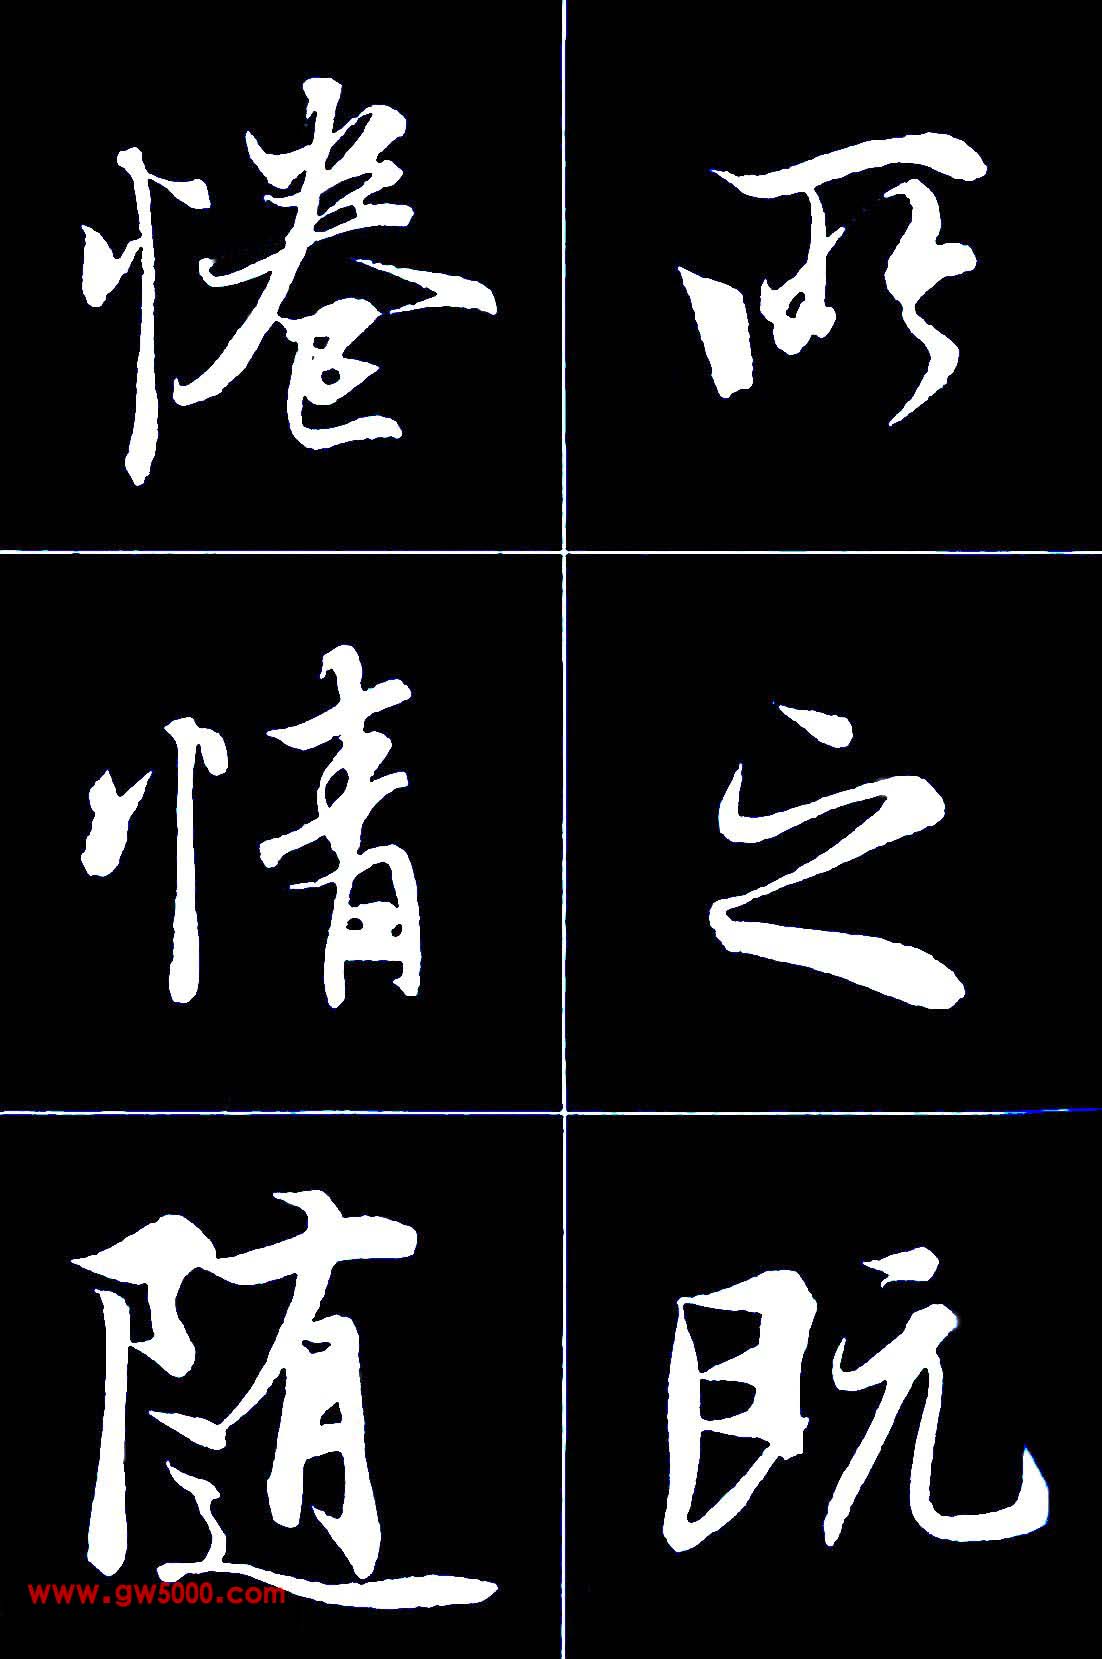 所之既
惓情随
www.gw5000.com